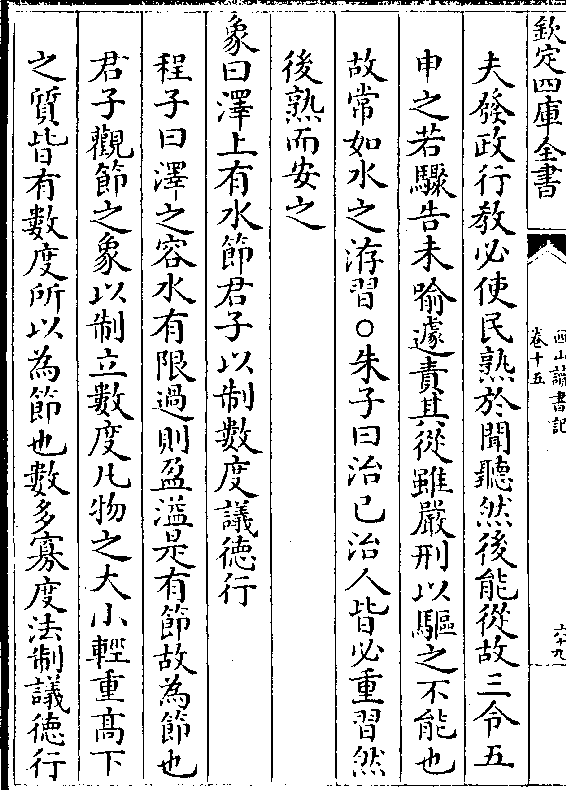 欽定四庫全書
西山讀書記
卷十五
六十九
夫發政行教必使民熟於聞聽然後能從故三令五
申之若驟告未喻遽責其從雖嚴刑以驅之不能也
故常如水之洊習○朱子曰治已治人皆必重習然
後熟而安之
象曰澤上有水節君子以制數度議徳行
程子曰澤之容水有限過則盈溢是有節故為節也
君子觀節之象以制立數度凡物之大小輕重髙下
之質皆有數度所以為節也數多寡度法制議徳行